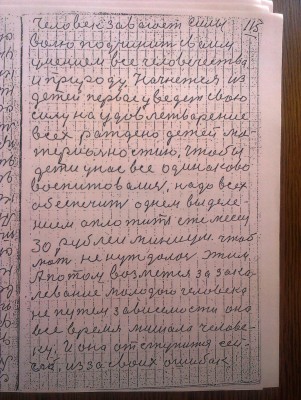 113
человек завоюет силы
волю подчинит своим
умением все человечества
и природу. Начнется из
детей первое уведет свою
силу на удовлетварение
всех рождено детей ма-
териалностию, чтобы
дети у нас все одинаково
воспитовалис, надо всех
обеспечит однем выделе-
нием оплотит ежемесец
30 рублей миниум. чтоб
мат не нуждалас этим.
А потом возмется за зака-
левание молодого человека
не путем зависимости она
все время мишала челове-
ку. И она отступится сей-
час, из за своих ошибак